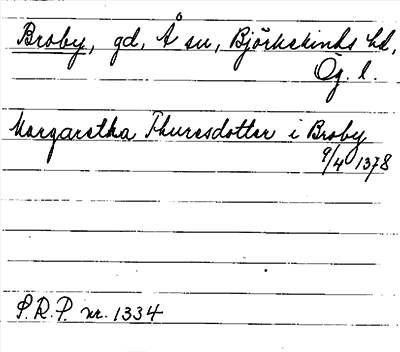 Broby, gd, Å sn, Björkekinds hd,
Ög. l.
Margaretha Thuresdotter i Broby
9/4 1378
S.R.P. nr. 1334